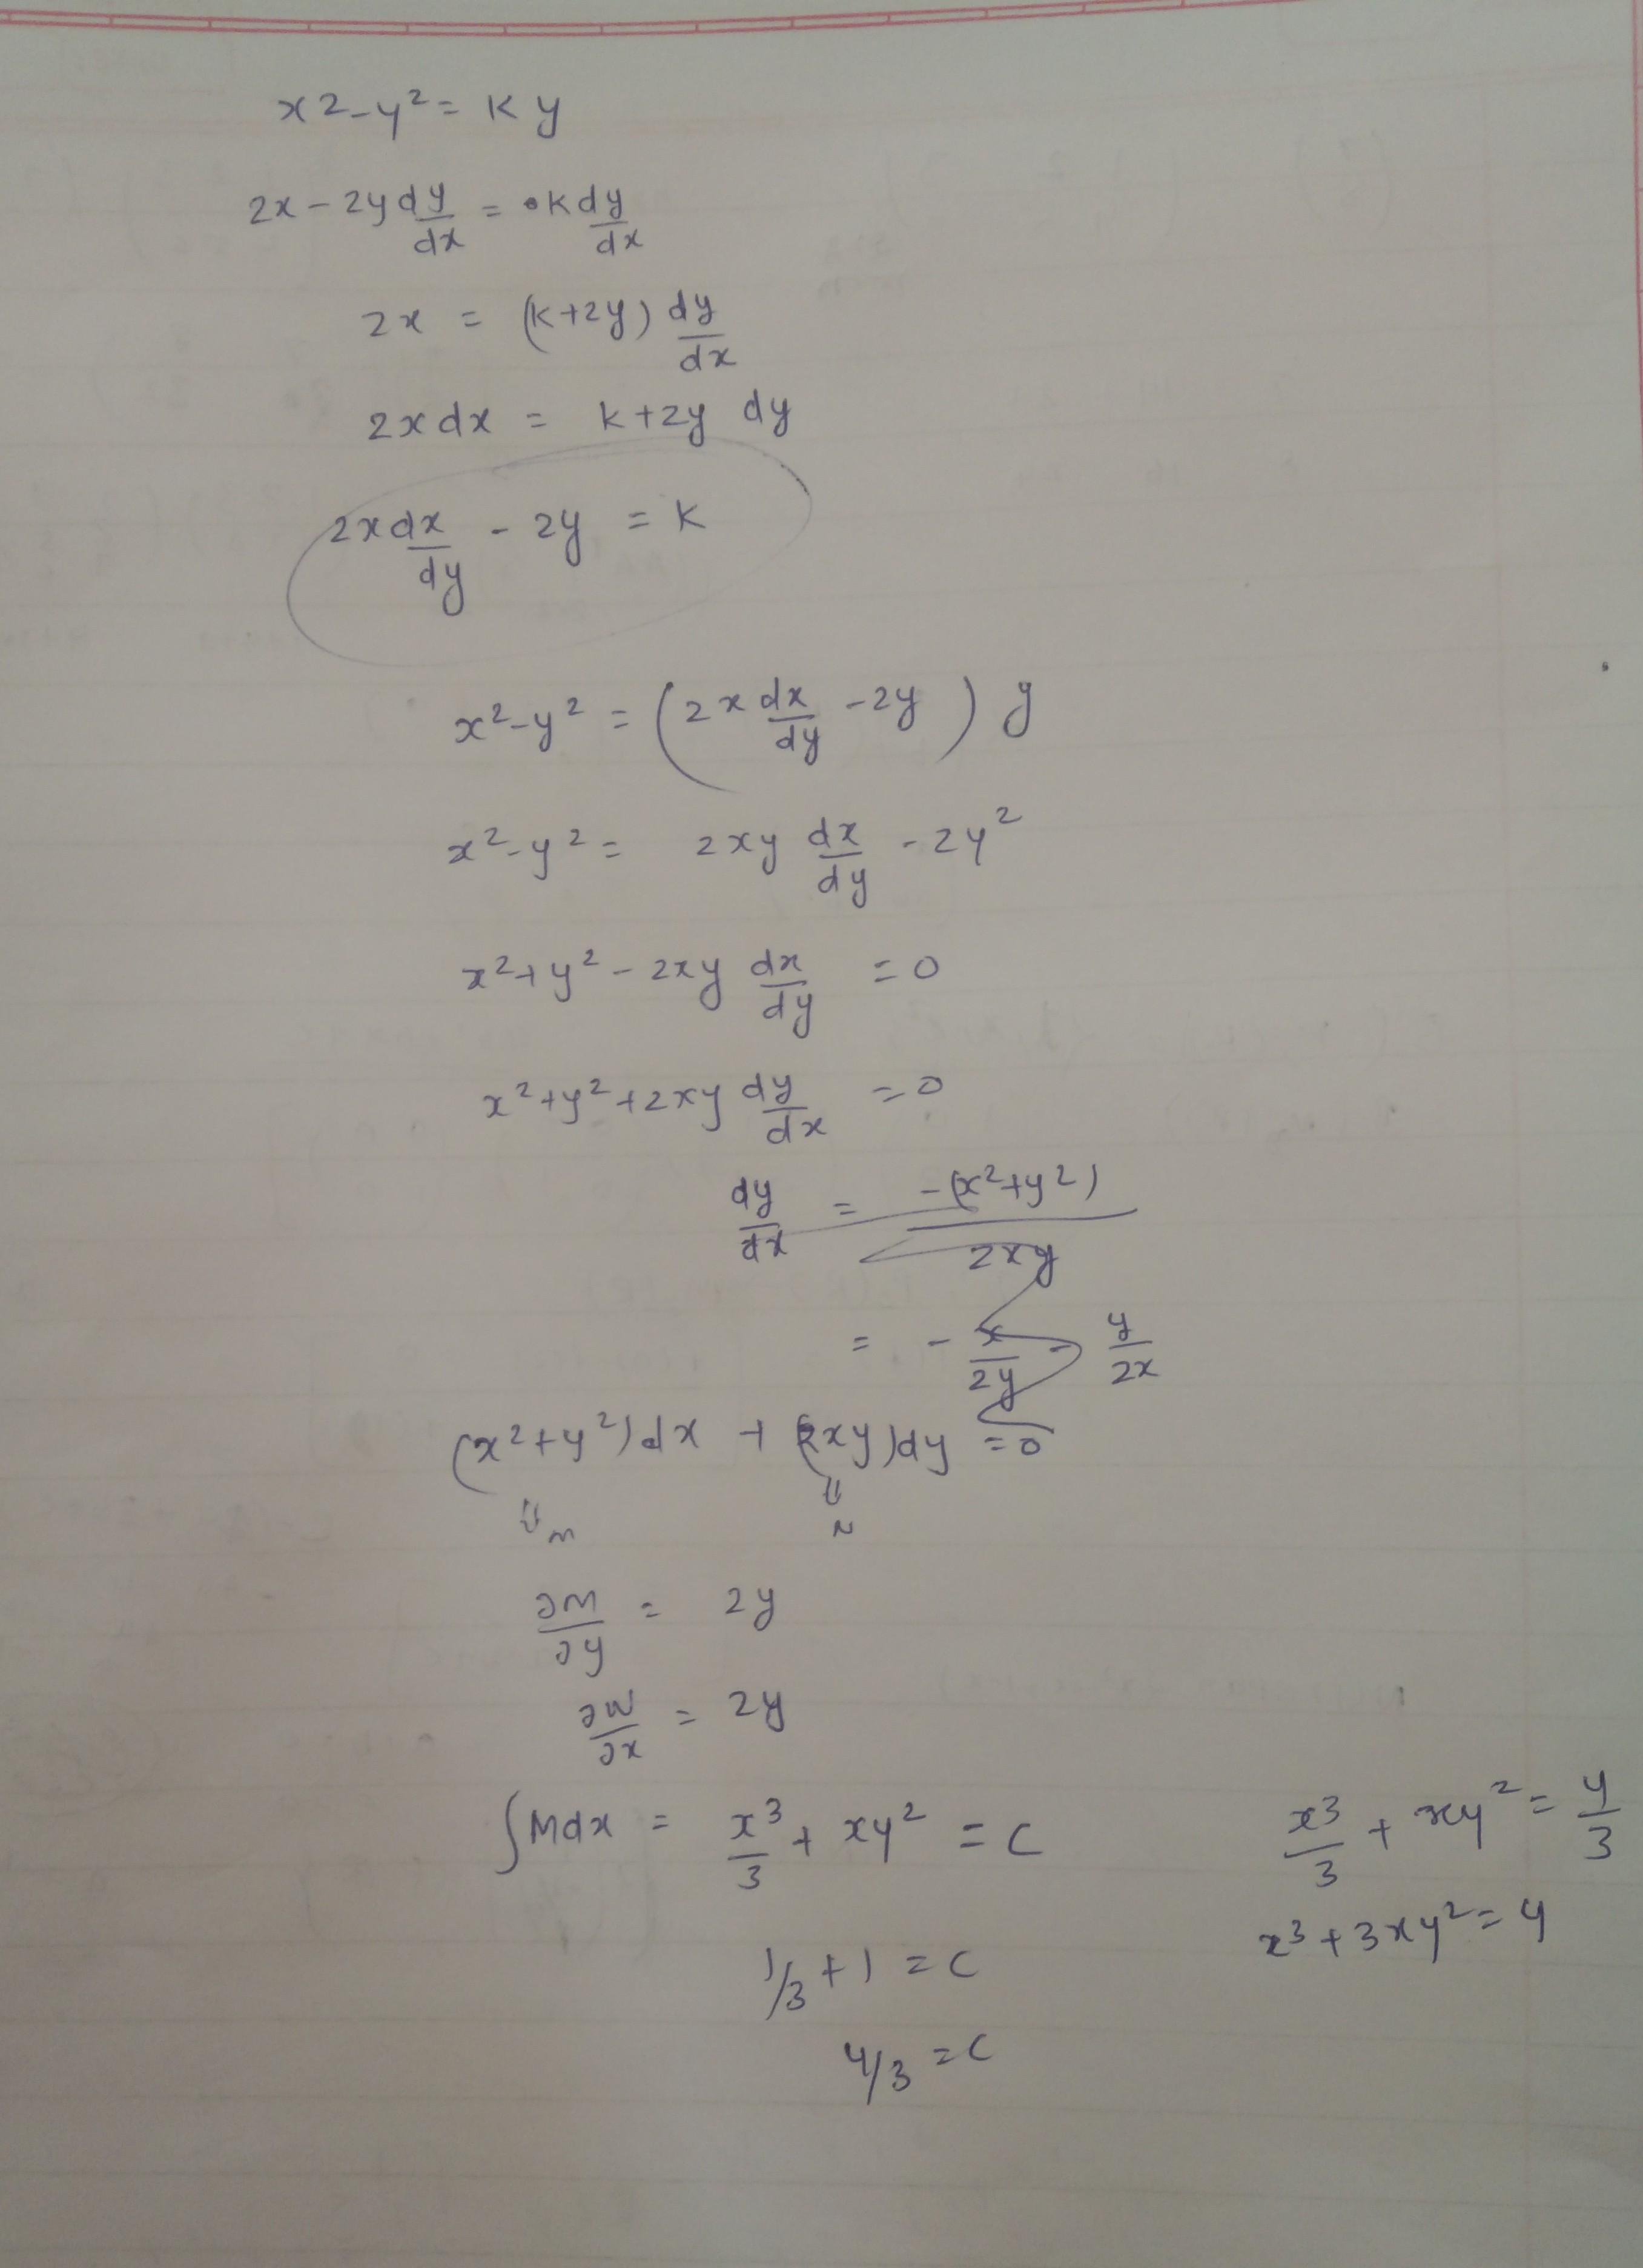 x2-y² = ky
2x - 2y dy/dx = k dy/dx
2x = (k+2y) dy/dx
2x dx = k+2y dy
2x dx/dy - 2y = k
x²-y² = (2x dx/dy - 2y) y
x²-y² = 2xy dx/dy - 2y²
x²+y² - 2xy dx/dy = 0
x²+y²+2xy dy/dx = 0
dy/dx = -(x²+y²)/2xy
= - x/2y - y/2x
(x²+y²)dx + (2xy)dy = 0
⇓ m ⇓ N
∂M/∂y = 2y
∂N/∂x = 2y
∫Mdx = x³/3 + xy² = c
1/3 + 1 = c
4/3 = c
x³/3 + xy² = 4/3
x³+3xy² = 4